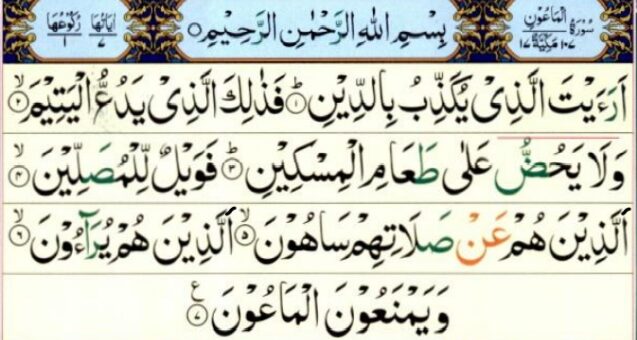 سُوْرَةُ الْمَاعُوْنِ
١٠٧ مَكِّيَّةٌ ١٧
بِسْمِ اللهِ الرَّحْمٰنِ الرَّحِيْمِ
اٰيَاتُهَا ٧
رُكُوْعُهَا ١
اَرَءَيْتَ الَّذِىْ يُكَذِّبُ بِالدِّيْنِ ۙ﴿١﴾ فَذٰلِكَ الَّذِىْ يَدُعُّ الْيَتِيْمَ ۙ﴿٢﴾
وَلَا يَحُضُّ عَلٰى طَعَامِ الْمِسْكِيْنِ ۙ﴿٣﴾ فَوَيْلٌ لِّلْمُصَلِّيْنَ ۙ﴿٤﴾
الَّذِيْنَ هُمْ عَنْ صَلَاتِهِمْ سَاهُوْنَ ۙ﴿٥﴾ الَّذِيْنَ هُمْ يُرَآءُوْنَ ۙ﴿٦﴾
وَيَمْنَعُوْنَ الْمَاعُوْنَ ۧ﴿٧﴾